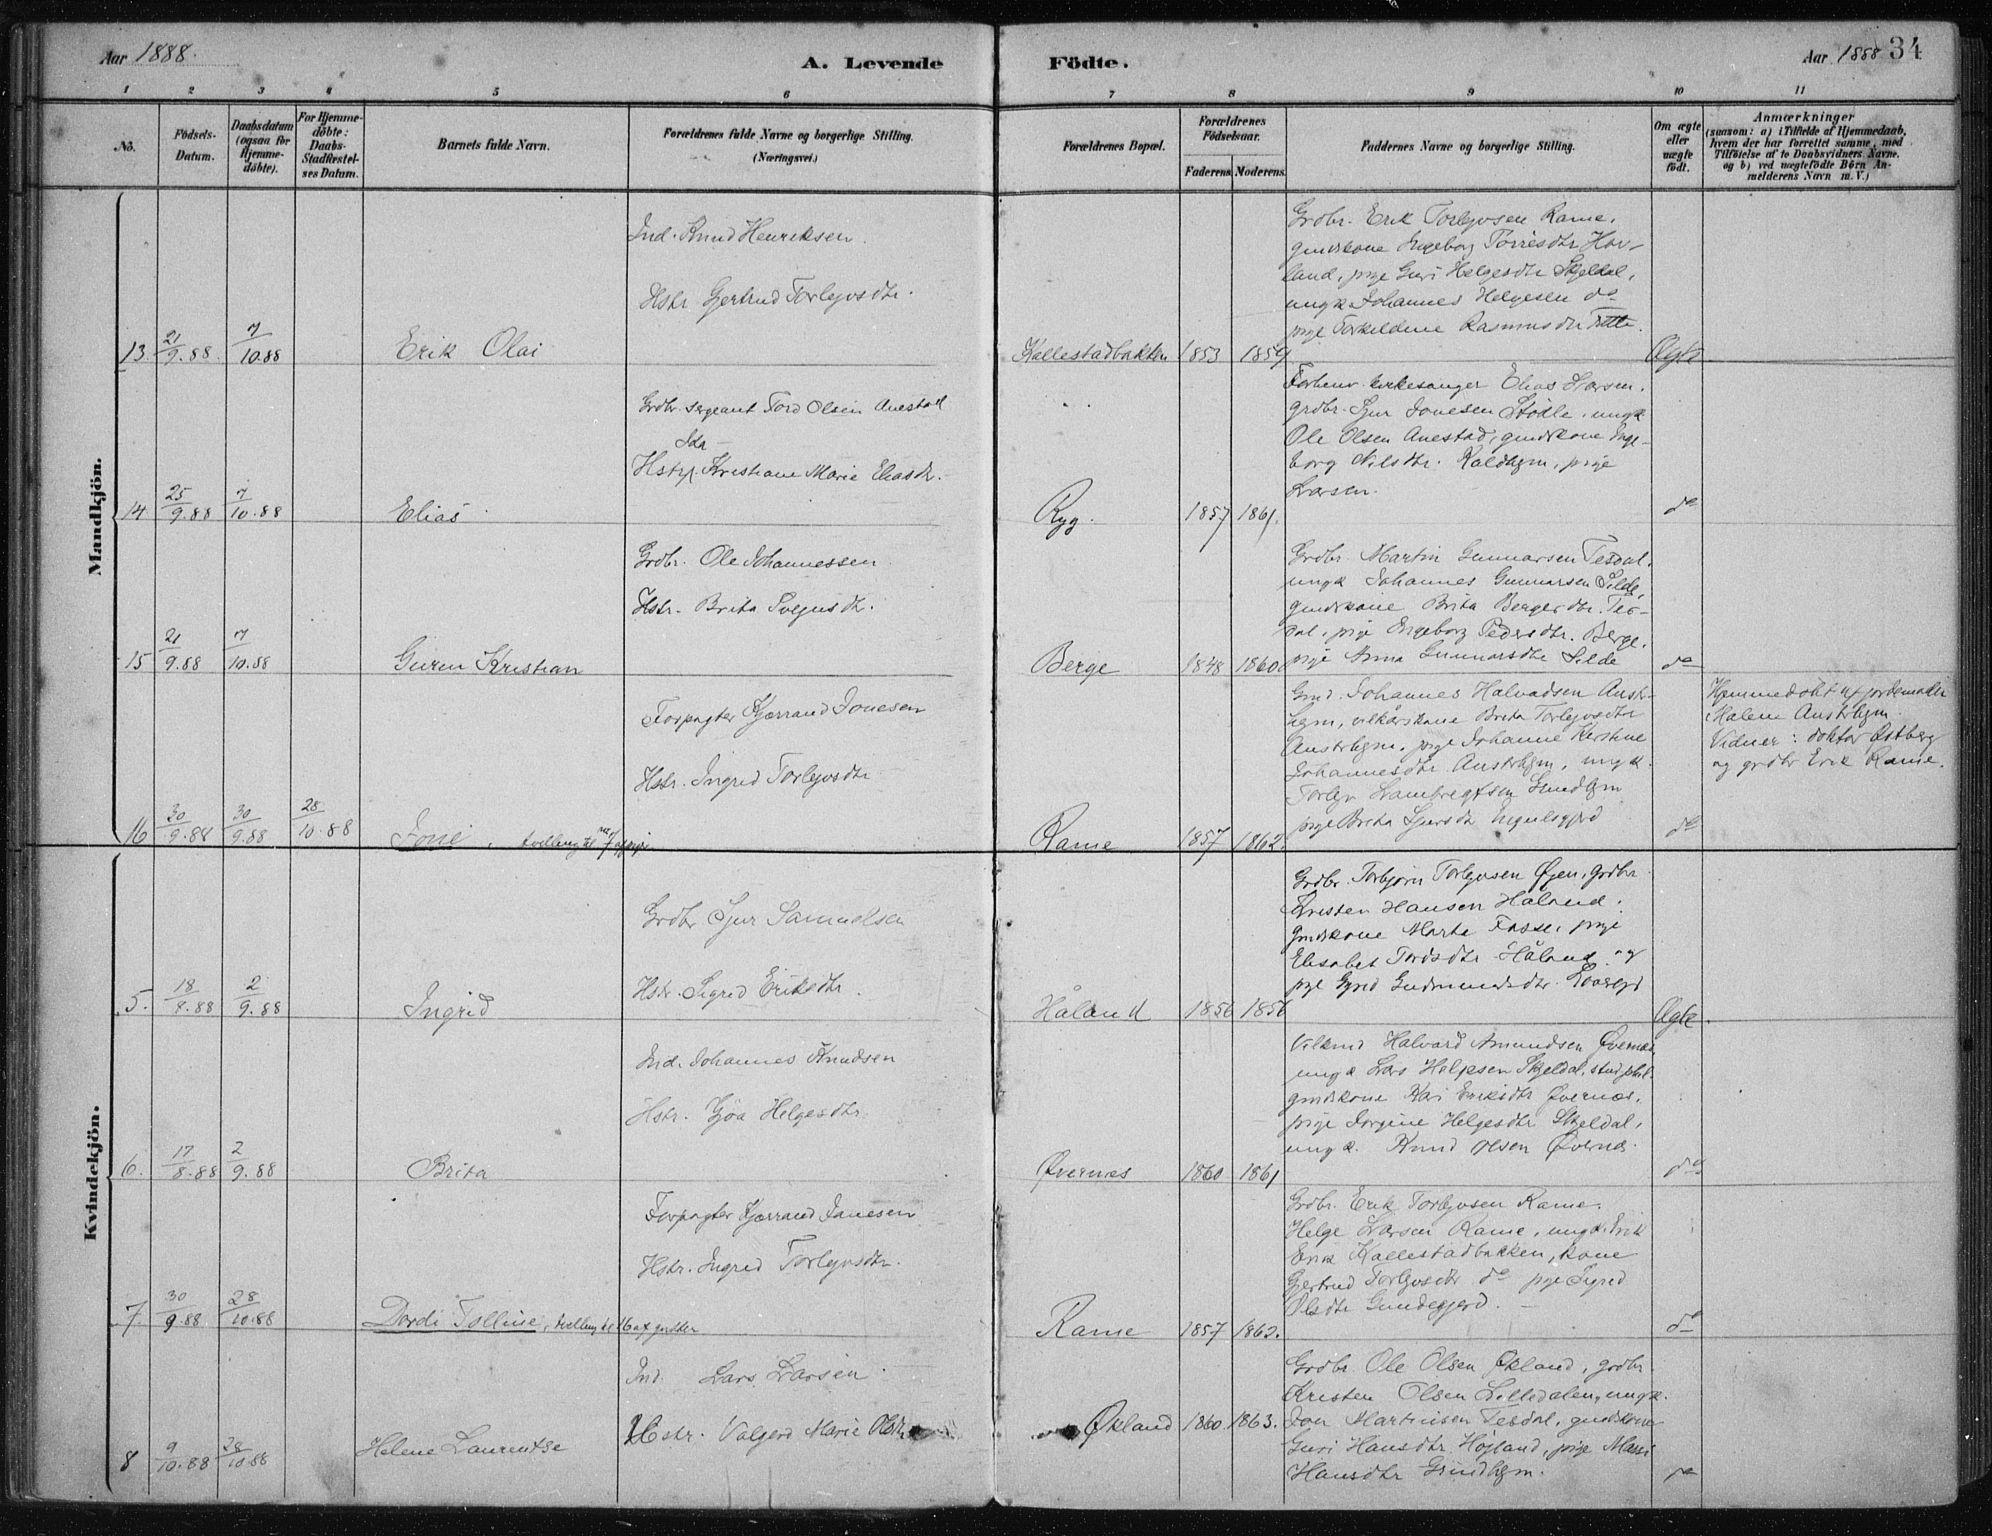 Aar 1888.
A. Levende
Födte.
Aar 1888 34
1 2 3 4 5 6 7 8 9 10 11
No.
Födsels-
Datum.
Daabsdatum
(ogsaa for
Hjemme-
döbte).
For Hjemme-
döbte:
Daabs-
Stadfæstel-
ses Datum.
Barnets fulde Navn.
Forældrenes fulde Navne og borgerlige Stilling.
(Næringsvei.)
Forældrenes Bopæl.
Forældrenes
Födselsaar.
Faderens Moderens
Faddernes Navne og borgerlige Stilling.
Om ægte
eller
uægte
födt.
Anmærkninger
(saasom: a) i Tilfælde af Hjemmedaab,
hvem der har forrettet samme, med
Tilföielse af to Daabsvidners Navne.
og b) ved uægtefödte Börn An-
melderens Navn m. V.)
Mandkjön.
13 21/9.88 7/10.88
Erik Olai
Ind. Knud Henriksen.
Hstr Gjertrud Torlejvsdtr.
Kallestadbakken 1853 1859
Grdbr. Erik Torlejvsen Rame,
gmdskone Ingeborg Torrisdtr Hav-
land, pige Guri Helgesdtr Skjeldal,
ungk Johannes Helgesen do
pige Torkeldine Rasmusdtr
Ægte
14 25/9.88 7/10.88
Elias
Grdbr. sergeant Tord Olsen Anestad
Ida
Hstr. Kristiane Marie Eliasdtr.
Ryg. 1857 1861.
Forhenv. kirkesanger Elias Larsen,
grdbr. Sjur Jonesen Stödle, ungk
Ole Olsen Anestad, gmdskone Inge-
borg Nilsdtr. Kaldhgm, pige
Larsen.
do
15 21/9.88 7/10.88
Guren Kristian
Grdbr. Ole Johannessen
Hstr. Brita Svejnsdtr.
Berge 1848 1860.
Grdbr. Martin Gunnarsen Tesdal,
ungk Johannes Gunnarsen Silde,
gmdskone Brita Bergesdtr. Tes-
dal, pige Ingeborg Pedersdtr. Berge,
pige Anna Gunnarsdtr Silde
do
16 30/9.88 30/9.88 28/10.88
Jone, tvilling til no 7 af piger
Forpagter Kjærrand Jonesen
Hstr. Ingrid Torlejvsdtr
Rame 1857 1862.
Gmd. Johannes Halvadsen Austr-
hgm, vilkårskone Brita Torlejvsdtr
Austrhgm, pige Johanne Kirstine
Johannesdtr Austrhgm, ungk.
Torlejv Lambregtsen Grindhgm
pige Brita Sjursdtr
do
Hjemmedöbt af jordemoder
Malene Austrhgm.
Vidner: doktor Östberg
og grdbr Erik Rame.
Kvindekjön.
5. 18/8.88 2/9.88
Ingrid
Grdbr Sjur Samuelsen
Hstr. Sigrid Eriksdtr.
Håland 1856 1856
Grdbr. Torbjörn Torlejvsen Öyen, grdbr.
Kristen Hansen Håland.
Gmdskone Marta Fosse, pige
Elisabet Tordsdtr Håland og
pige Gyrid Gudmundsdtr.
Ægte
6. 17/8.88 2/9.88
Brita
Ind. Johannes Knudsen
Hstr. Gjöa Helgesdtr.
Övernæs 1860 1861
Vilkmd Halvard Amundsen Övernæs
ungk Lars Helgesen Skjeldal, stud. phil.
gmdskone Kari Eriksdtr Övernæs,
pige Jorgine Helgesdtr Skjeldal,
ungk. Knud Olsen Övernæs.
do
7. 30/9.88 28/10.88
Dordi Tolline, tvilling til 16 af gutter
Forpagter Kjærrand Jonesen
Hstr. Ingrid Torlejvsdtr.
Rame 1857 1862.
Grdbr. Erik Torlejvsen Rame.
Helge Larsen Rame, ungk. Erik
Erik Kallestadbakken, kone
Gjertrud Torlejvsdtr do pige Sigrid
Olsdtr Gundegjerd.
do
8 9/10.88 28/10.88
Helene Lauritse
Ind. Lars Larsen
Hstr. Valgerd Marie Olsdtr
Ökland 1860. 1863.
Grdbr. Ole Olsen Ökland, grdbr.
Kristen Olsen Lilledalen, ungk.
Jon Martinsen Tesdal, gmdskone
Guri Hansdtr. Höjland, pige Massi
Hansdtr Grindhgm.
do